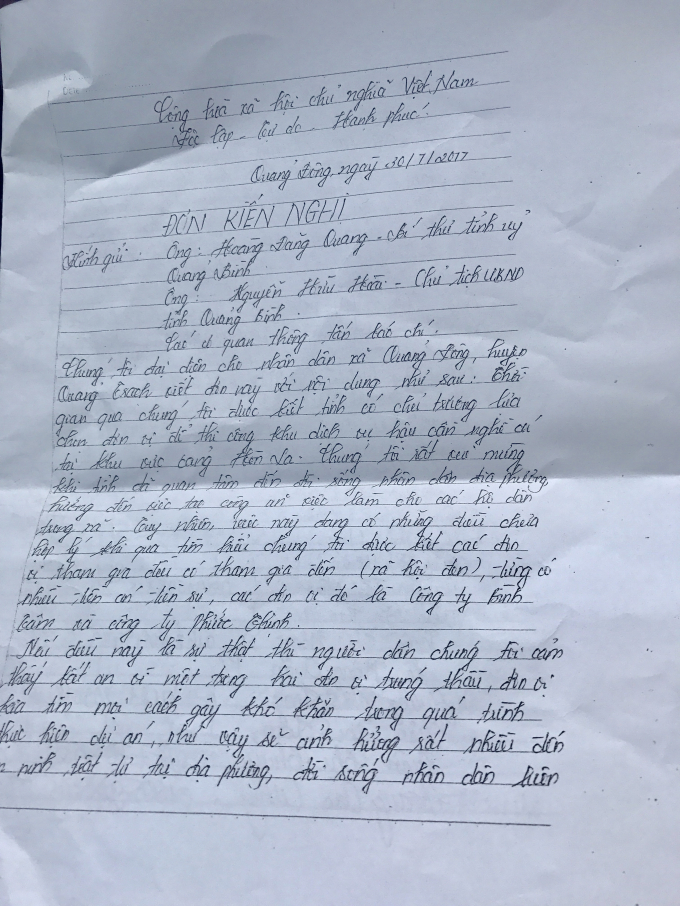 Cộng hòa xã hội chủ nghĩa Việt Nam
Độc lập - Tự do - Hạnh phúc!
Quảng Đông ngày 30/7/2017
ĐƠN KIẾN NGHỊ
Kính gửi: Ông: Hoàng Đăng Quang - Bí thư tỉnh uỷ
Quảng Bình.
Ông: Nguyễn Hữu Hoài - Chủ tịch UBND
tỉnh Quảng Bình.
Các cơ quan thông tấn báo chí.
Chúng tôi đại diện cho nhân dân xã Quảng Đông, huyện
Quảng Trạch viết đơn này với nội dung như sau: Thời
gian qua chúng tôi được biết tỉnh có chủ trương lựa
chọn đơn vị để thi công khu dịch vụ hậu cần nghề cá
tại khu vực cảng Hòn La. Chúng tôi rất vui mừng
khi tỉnh đã quan tâm đến đời sống nhân dân địa phương,
hướng đến việc tạo công ăn việc làm cho các hộ dân
trong xã. Tuy nhiên, việc này đang có những điều chưa
hợp lý khi qua tìm hiểu chúng tôi được biết các đơn
vị tham gia đều có tham gia đến (xã hội đen), từng có
nhiều tiền án tiền sự, các đơn vị đó là Công ty Bình
Tâm và công ty Phúc Chinh.
Nếu điều này là sự thật thì người dân chúng tôi cảm
thấy bất an vì một trong hai đơn vị trúng thầu, đơn vị
kia tìm mọi cách gây khó khăn trong quá trình
thực hiện dự án, như vậy sẽ ảnh hưởng rất nhiều đến
an ninh trật tự tại địa phương, đời sống nhân dân luôn